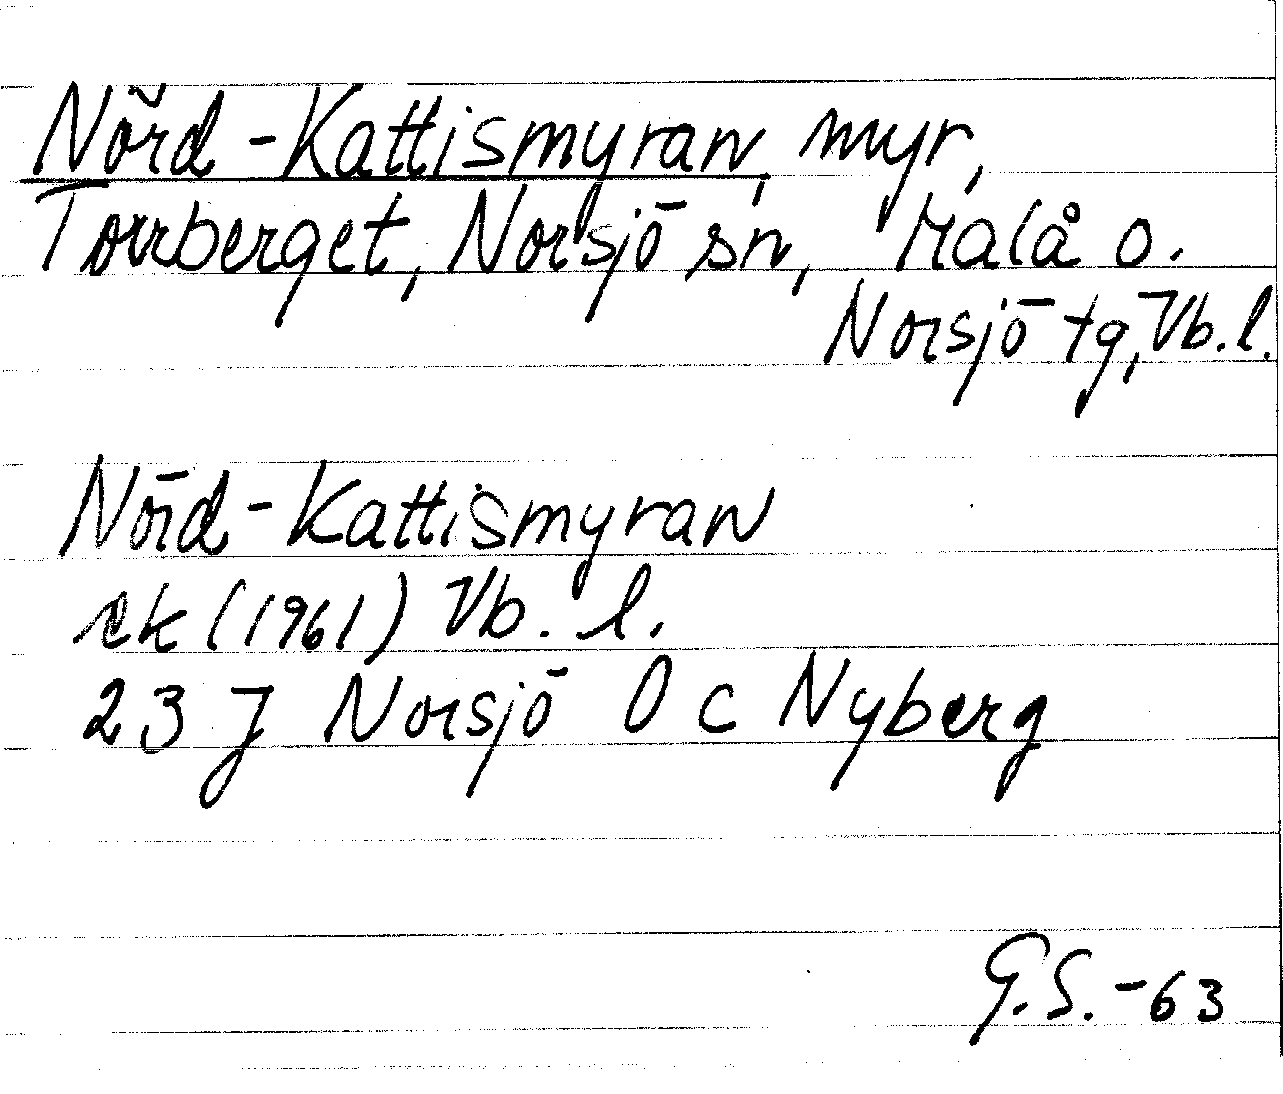 Nörd-Kattismyran, myr,
Torrberget, Norsjö sn, Malå o.
Norsjö tg, Vb. l.
Nörd-Kattismyran
ek (1961) Vb. l.
23 J Norsjö 0 c Nyberg
G.S. -63